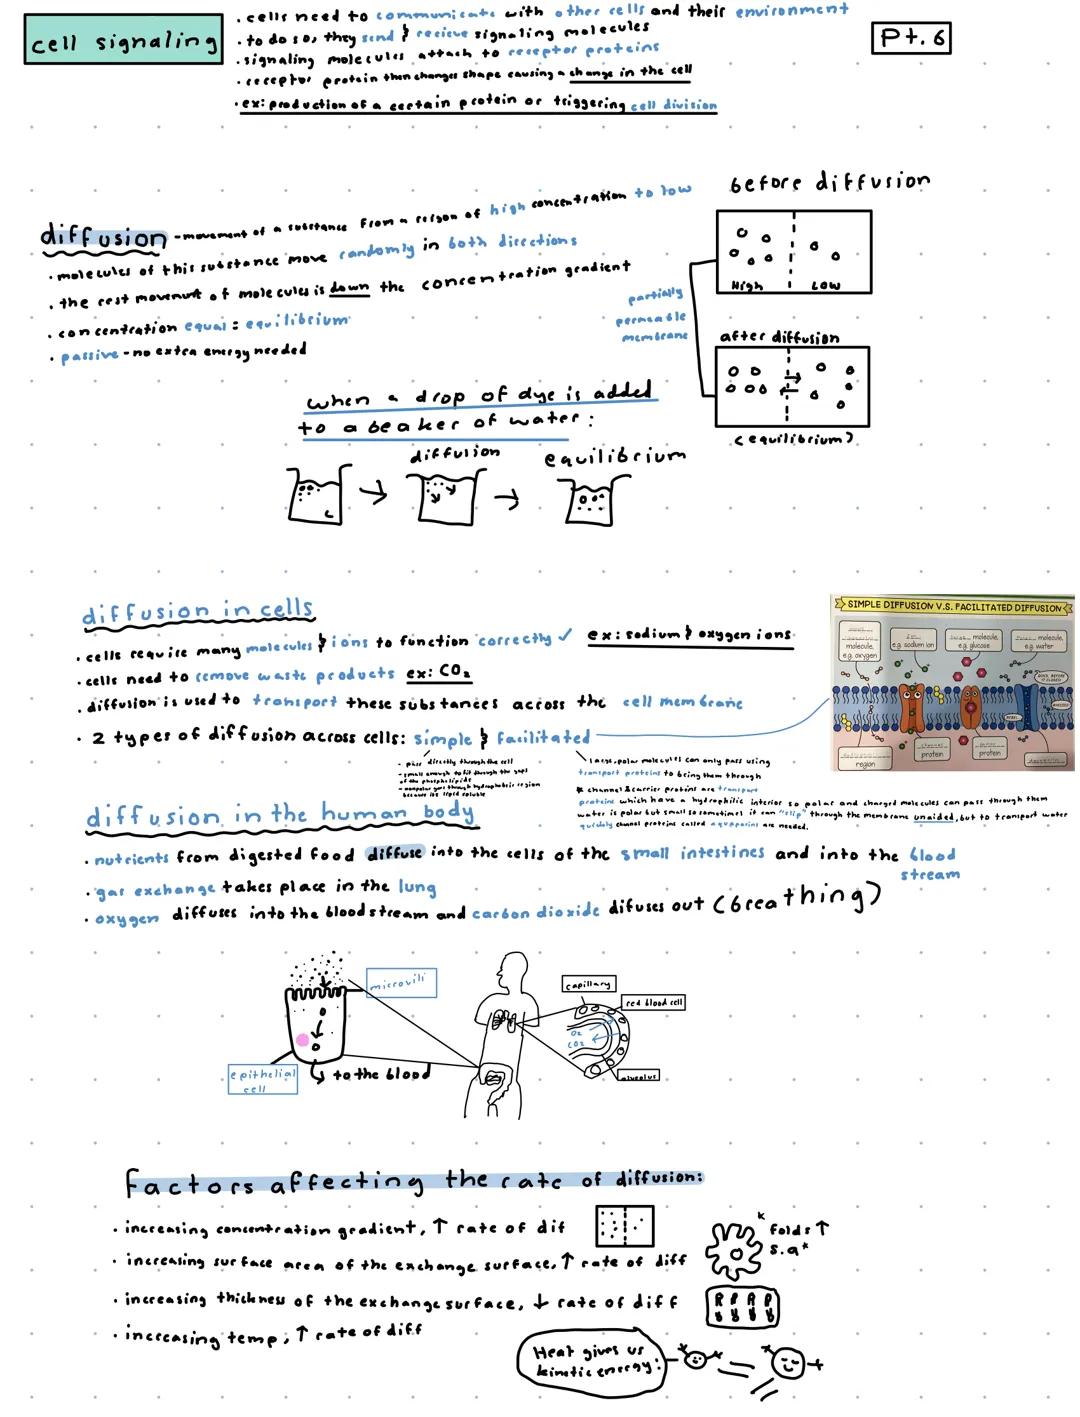 cell signaling
• cells need to communicate with other cells and their environment
• to do so, they send & recieve signaling molecules
• signaling molecules attach to receptor proteins
• receptor protein then changes shape causing a change in the cell
• ex: production of a certain protein or triggering cell division
Pt. 6
diffusion - movement of a substance from a reigon of high concentration to low
• molecules of this substance move randomly in both directions
• the rest movement of molecules is down the concentration gradient
• concentration equal = equilibrium
• passive - no extra energy needed
before diffusion
High Low
partially
permeable
membrane
after diffusion
(equilibrium)
when a drop of dye is added
to a beaker of water:
diffusion
equilibrium
diffusion in cells
• cells require many molecules & ions to function correctly ✓ ex: sodium & oxygen ions
• cells need to remove waste products ex: CO₂
• diffusion is used to transport these substances across the cell membrane
• 2 types of diffusion across cells: simple & facilitated
- pass directly through the cell
- small enough to fit through the gaps
of the phospholipids
- nonpolar goes through hydrophobic region
because its lipid soluble
large, polar molecules can only pass using
transport proteins to being them through
* channel & carrier protiens are transport
proteins which have a hydrophilic interior so polar and charged molecules can pass through them
water is polar but small so sometimes it can "slip" through the membrane unaided, but to transport water
quickly channel proteins called aquaporins are needed.
SIMPLE DIFFUSION V.S. FACILITATED DIFFUSION
molecule,
e.g. oxygen
e.g. sodium ion
molecule,
e.g. glucose
molecule,
e.g. water
region
protein
protein
diffusion in the human body
• nutrients from digested food diffuse into the cells of the small intestines and into the blood
stream
• gas exchange takes place in the lung
• oxygen diffuses into the bloodstream and carbon dioxide difuses out (breathing)
microvili
epithelial
cell
to the blood
capillary
red blood cell
O₂
CO₂
alveolus
factors affecting the rate of diffusion:
• increasing concentration gradient, ↑ rate of dif
• increasing surface area of the exchange surface, ↑ rate of diff
* folds ↑
s.a *
• increasing thickness of the exchange surface, ↓ rate of diff
• increasing temp, ↑ rate of diff
Heat gives us
kinetic energy!